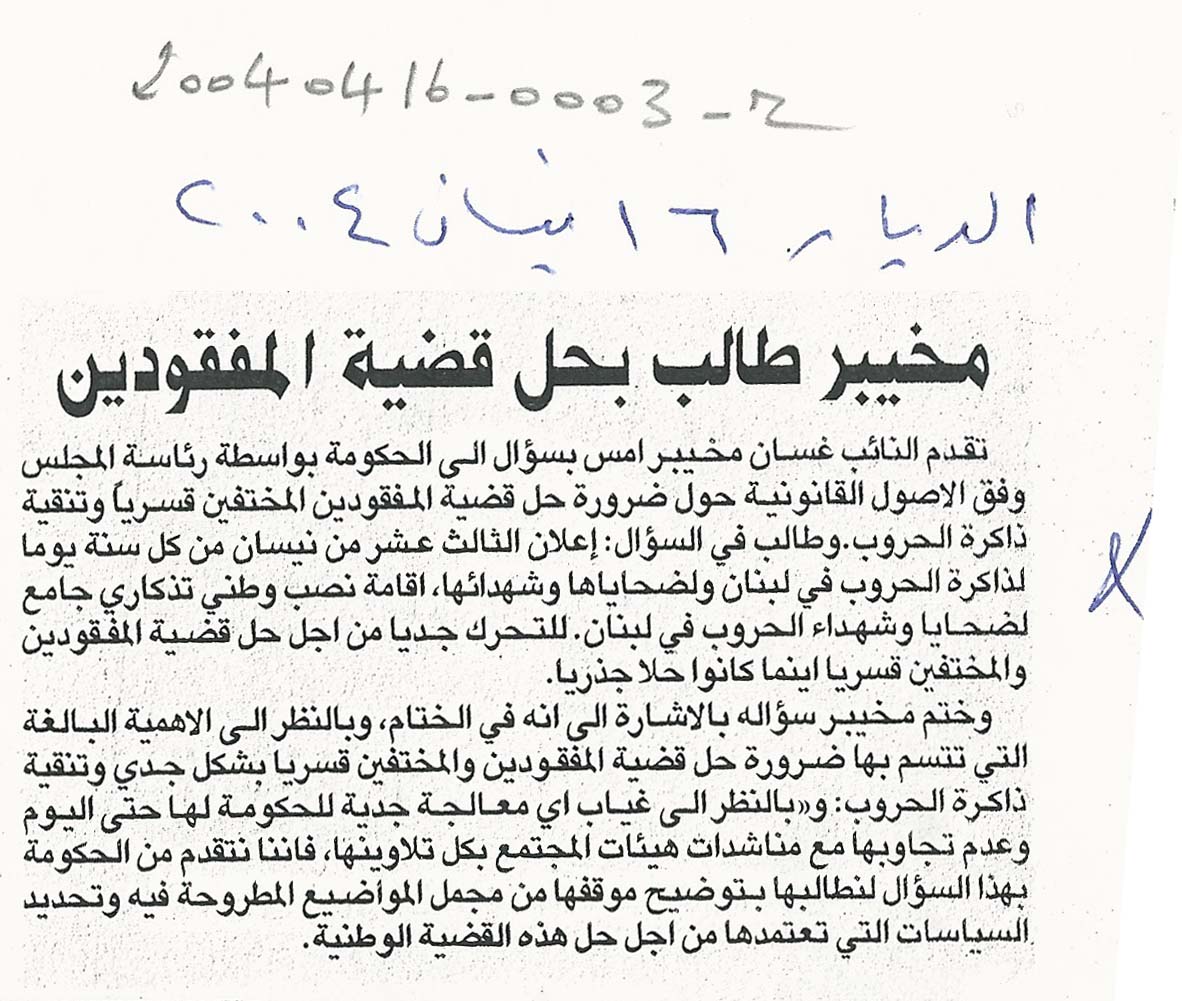 20040416-0003-2
الديار ١٦ نيسان ٢٠٠٤
مخيبر طالب بحل قضية المفقودين
تقدم النائب غسان مخيبر امس بسؤال الى الحكومة بواسطة رئاسة المجلس
وفق الاصول القانونية حول ضرورة حل قضية المفقودين المختفين قسرياً وتنقية
ذاكرة الحروب.وطالب في السؤال: إعلان الثالث عشر من نيسان من كل سنة يوما
لذاكرة الحروب في لبنان ولضحاياها وشهدائها، اقامة نصب وطني تذكاري جامع
لضحايا وشهداء الحروب في لبنان. للتحرك جديا من اجل حل قضية المفقودين
والمختفين قسريا اينما كانوا حلا جذريا.
وختم مخيبر سؤاله بالاشارة الى انه في الختام، وبالنظر الى الاهمية البالغة
التي تتسم بها ضرورة حل قضية المفقودين والمختفين قسريا بشكل جدي وتنقية
ذاكرة الحروب: و«بالنظر الى غياب اي معالجة جدية للحكومة لها حتى اليوم
وعدم تجاوبها مع مناشدات هيئات المجتمع بكل تلاوينها، فاننا نتقدم من الحكومة
بهذا السؤال لنطالبها بتوضيح موقفها من مجمل المواضيع المطروحة فيه وتحديد
السياسات التي تعتمدها من اجل حل هذه القضية الوطنية.